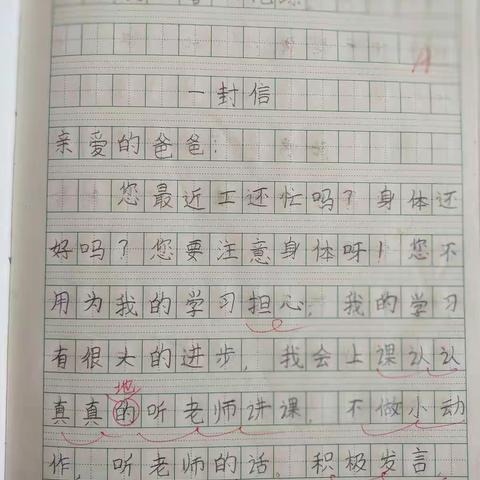 A
一封信
亲爱的爸爸:
您最近工还忙吗?身体还
好吗?您要注意身体呀!您不
用为我的学习担心,我的学习
有很大的进步,我会上课认认
地
真真的听老师讲课,不做小动
作,听老师的话。积极发言,